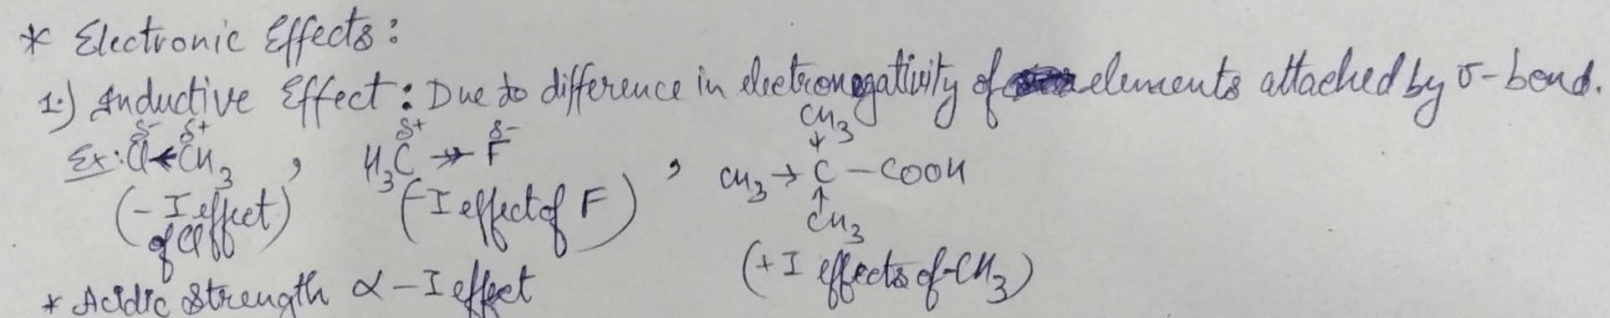 * Electronic Effects:
1.) Inductive Effect: Due to difference in electronegativity of elements attached by σ-bond.
Ex: Cl^δ- ← C^δ+H3 , H3C^δ+ → F^δ- , CH3 → C(← CH3)(← CH3) – COOH
(-I effect of Cl) (-I effect of F) (+I effects of -CH3)
* Acidic Strength ∝ -I effect